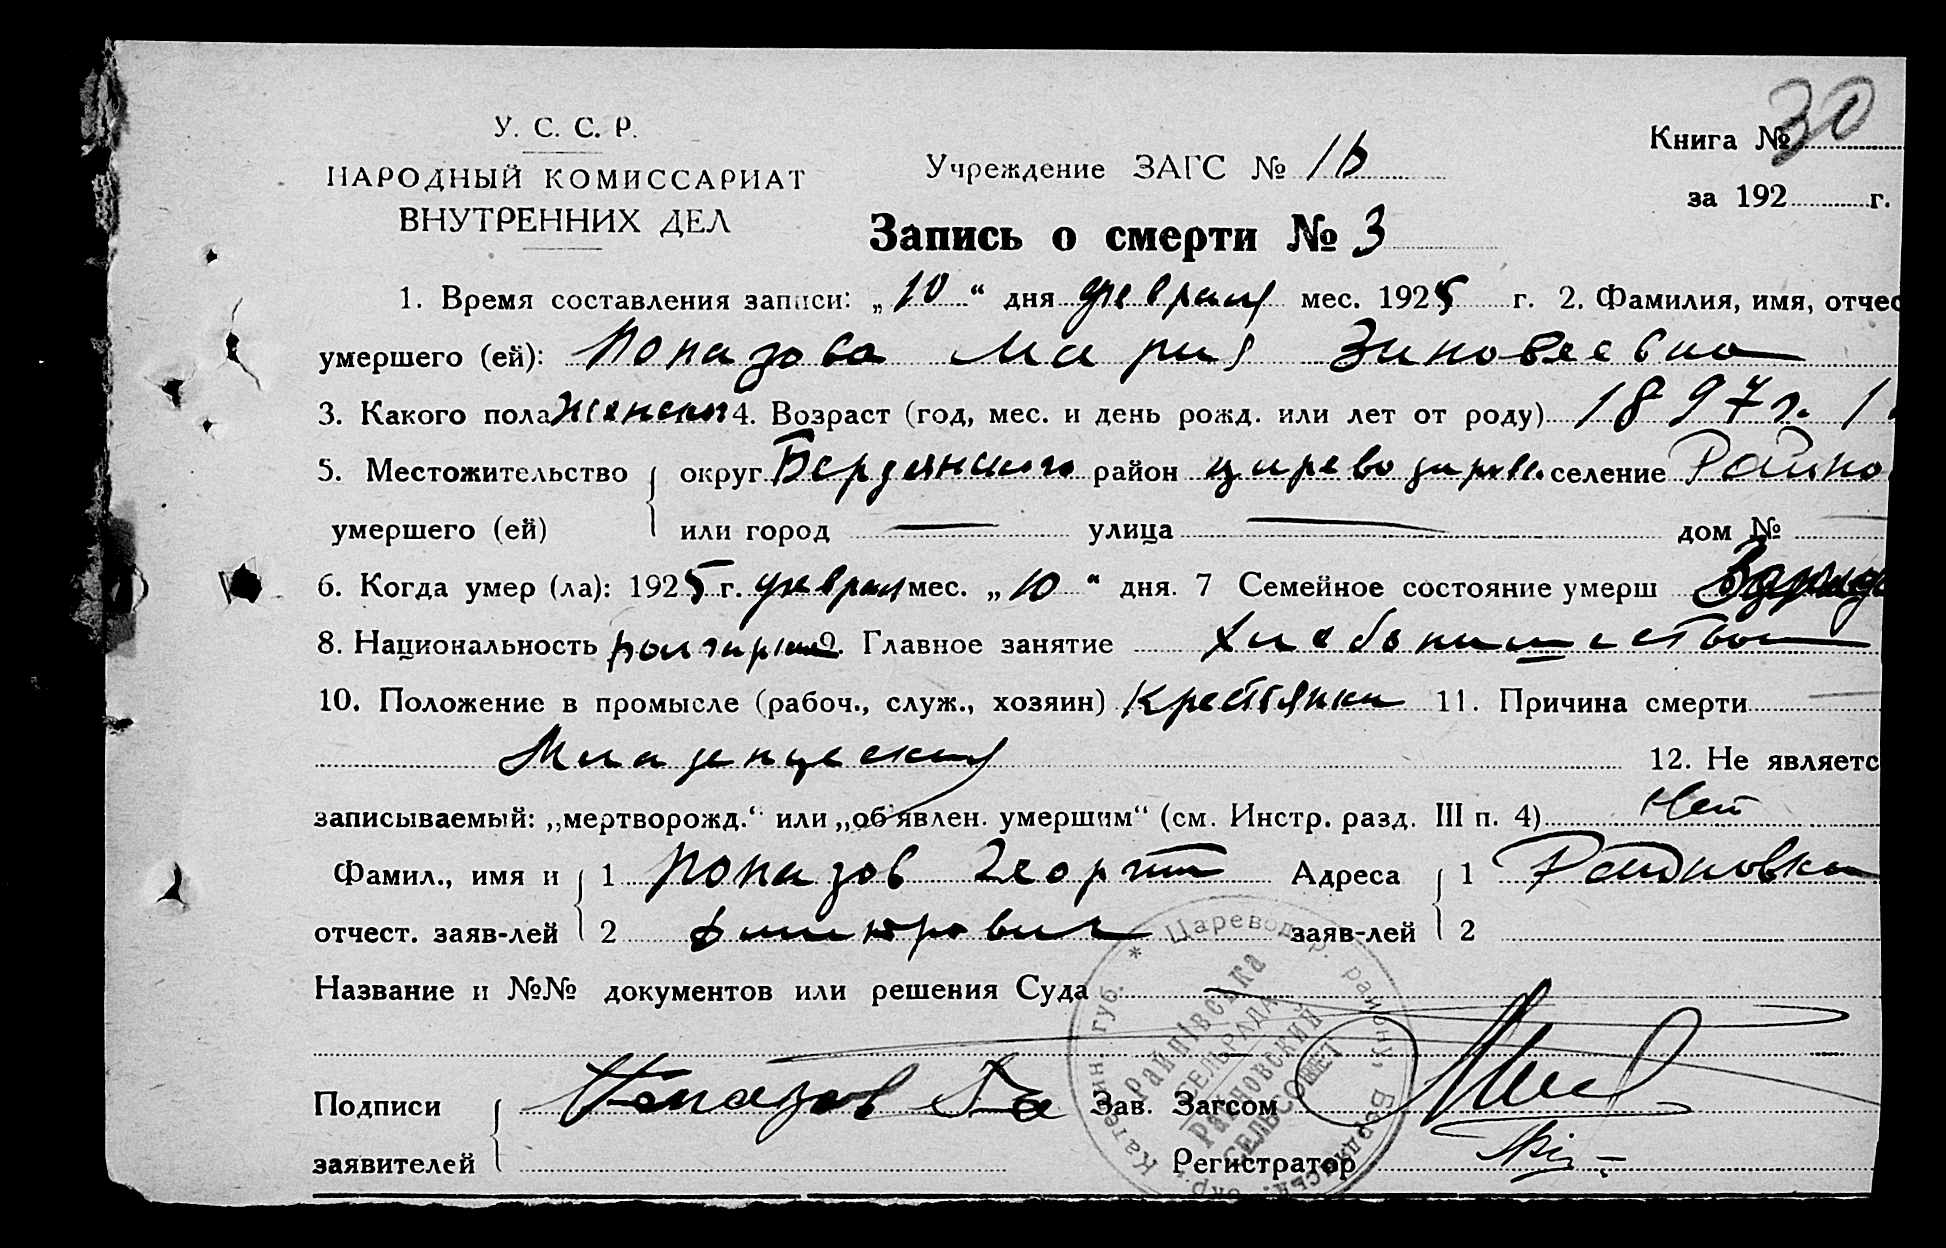 У. С. С. Р.
НАРОДНЫЙ КОМИССАРИАТ
ВНУТРЕННИХ ДЕЛ
Учреждение ЗАГС № 1б
Книга № 30
за 192 г.
Запись о смерти № 3
1. Время составления записи: „10“ дня февраля мес. 1925 г. 2. Фамилия, имя, отчес
умершего (ей): Попазова Мария Зиновеевна
3. Какого пола Женского 4. Возраст (год, мес. и день рожд. или лет от роду) 1897 г.
5. Местожительство округ Бердянского район царевод селение Райно
умершего (ей) или город — улица — дом № —
6. Когда умер (ла): 1925 г. февраля мес. „10“ дня. 7 Семейное состояние умерш
8. Национальность болгарка 9. Главное занятие Хлебопашество
10. Положение в промысле (рабоч., служ., хозяин) Крестьянка 11. Причина смерти —
Младенческая 12. Не являетс
записываемый: „мертворожд.“ или „об'явлен. умершим“ (см. Инстр. разд. III п. 4) Нет
Фамил., имя и 1 Попазов Георгий Адреса 1 Райновка
отчест. заяв-лей 2 Дмитрович заяв-лей 2
Название и №№ документов или решения Суда
Подписи Попазов Ге Зав. Загсом
заявителей Регистратор
* Цареводар. району, Бердянськ. окр. Катерин. губ.
Райнівська
СЕЛЬРАДА
Райновский
СЕЛЬСОВЕТ